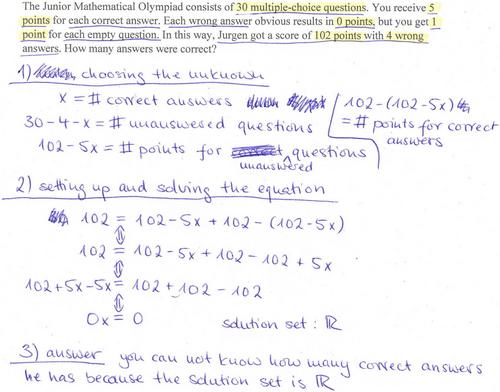 The Junior Mathematical Olympiad consists of 30 multiple-choice questions. You receive 5
points for each correct answer. Each wrong answer obvious results in 0 points, but you get 1
point for each empty question. In this way, Jurgen got a score of 102 points with 4 wrong
answers. How many answers were correct?
1) choosing the unknown
x = # correct answers
30-4-x = # unanswered questions
102-5x = # points for unanswered questions
102-(102-5x)
= # points for correct
answers
2) setting up and solving the equation
102 = 102-5x + 102-(102-5x)
⇕
102 = 102-5x + 102-102 + 5x
⇕
102+5x-5x = 102+102-102
⇕
0x = 0 solution set : ℝ
3) answer you can not know how many correct answers
he has because the solution set is ℝ